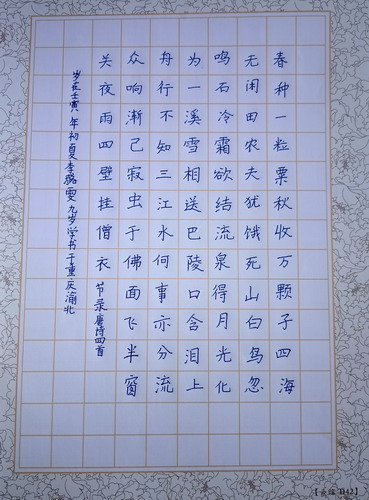 春种一粒粟秋收万颗子四海
无闲田农夫犹饿死山白鸟忽
鸣石冷霜欲结流泉得月光化
为一溪雪相送巴陵口含泪上
舟行不知三江水何事亦分流
众响渐已寂虫于佛面飞半窗
关夜雨四壁挂僧衣 节录唐诗四首
岁在壬寅年初夏李雯九岁学书于重庆渝北